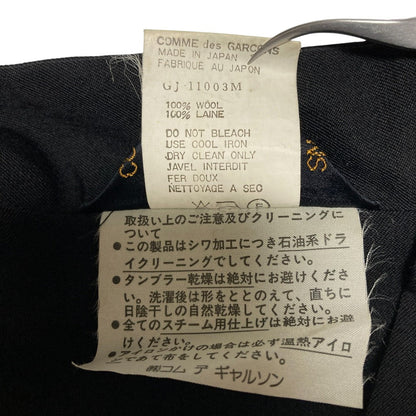 COMME des GARCONS
MADE IN JAPAN
FABRIQUE AU JAPON
GJ-11003M
100% WOOL
100% LAINE
DO NOT BLEACH
USE COOL IRON
DRY CLEAN ONLY
JAVEL INTERDIT
FER DOUX
NETTOYAGE A SEC
取扱い上のご注意及びクリーニングに
ついて
●この製品はシワ加工につき石油系ドラ
イクリーニングでしてください。
●タンブラー乾燥は絶対にお避けくださ
い。洗濯後は形をととのえ、直ちに
日陰干しの自然乾燥してください。
●全てのスチーム用仕上げは絶対にお避
けください。
●アイロンがけの場合は必ず温熱アイロ
ンであて布をしてください。
㈱コム デ ギャルソン